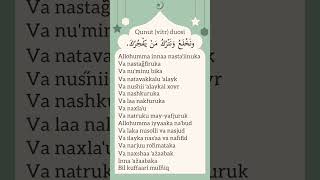 Qunut (vitr) duosi
وَنَخْلَعُ وَنَتْرُكُ مَنْ يَفْجُرُكَ.
Allohumma innaa nasta'iinuka
Va nastağfiruka
Va nu'minu bika
Va natavakkalu 'alayk
Va nusňii 'alaykal xoyr
Va nashkuruka
Va laa nakfuruka
Va naxla'u
Va natruku may-yafjuruk
Allohumma iyyaaka na'bud
Va laka nusolli va nasjud
Va ilayka nas'aa va nahfid
Va narjuu rohmataka
Va naxshaa 'ažaabak
Inna 'ažaabaka
Bil kuffaari mulhiq